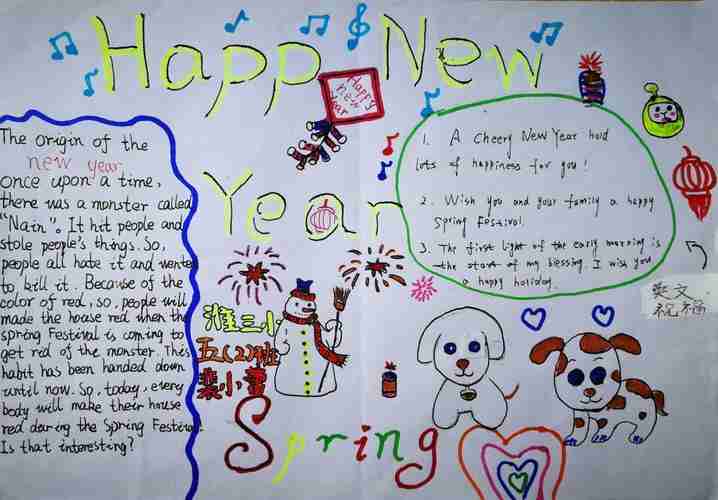 Happ New
Happy
new
Year
Year
The origin of the
new year
once upon a time,
there was a monster called
"Nain". It hit people and
stole people's things. So,
people all hate it and wented
to kill it. Because of the
color of red, so, people will
made the house red when the
spring Festival is coming to
get rid of the monster. This
habit has been handed down
until now. So, today, every
body will make their house
red daring the Spring Festival.
Is that interesting?
1. A Cheery New Year hold
lots of happiness for you!
2. Wish you and your family a happy
Spring Festival.
3. The first light of the early morning is
the start of my blessing. I wish you
a happy holiday.
英文
祝福
淮三小
五(2)班
小蕾
Spring